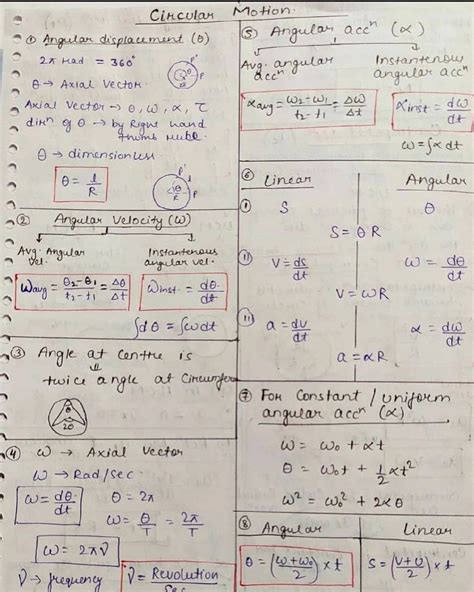 Circular Motion.
① Angular displacement (θ)
2π rad = 360°
θ → Axial Vector
Axial Vector → θ, ω, α, τ
dirⁿ of θ → by Right hand
thumb rule.
θ → dimensionless
θ = l/R
② Angular Velocity (ω)
Avg. Angular vel.
Instantenous angular vel.
ωavg = θ₂-θ₁/t₂-t₁ = Δθ/Δt
ωinst. = dθ/dt
∫dθ = ∫ωdt
③ Angle at centre is
twice angle at Circumfer
θ
2θ
④ ω → Axial Vector
ω → Rad/Sec.
ω = dθ/dt
θ = 2π
ω = θ/T = 2π/T
ω = 2πν
ν → frequency
ν = Revolution/Sec
⑤ Angular accⁿ (α)
Avg. angular accⁿ
Instantenous angular accⁿ
αavg = ω₂-ω₁/t₂-t₁ = Δω/Δt
αinst = dω/dt
ω = ∫α dt
⑥ Linear
Angular
(i) S
θ
S = θ R
(ii) V = ds/dt
ω = dθ/dt
V = ωR
(iii) a = dv/dt
α = dω/dt
a = αR
⑦ For Constant / uniform
angular accⁿ (α)
ω = ω₀ + αt
θ = ω₀t + 1/2 αt²
ω² = ω₀² + 2αθ
⑧ Angular
Linear
θ = (ω+ω₀/2) × t
S = (v+u/2) × t